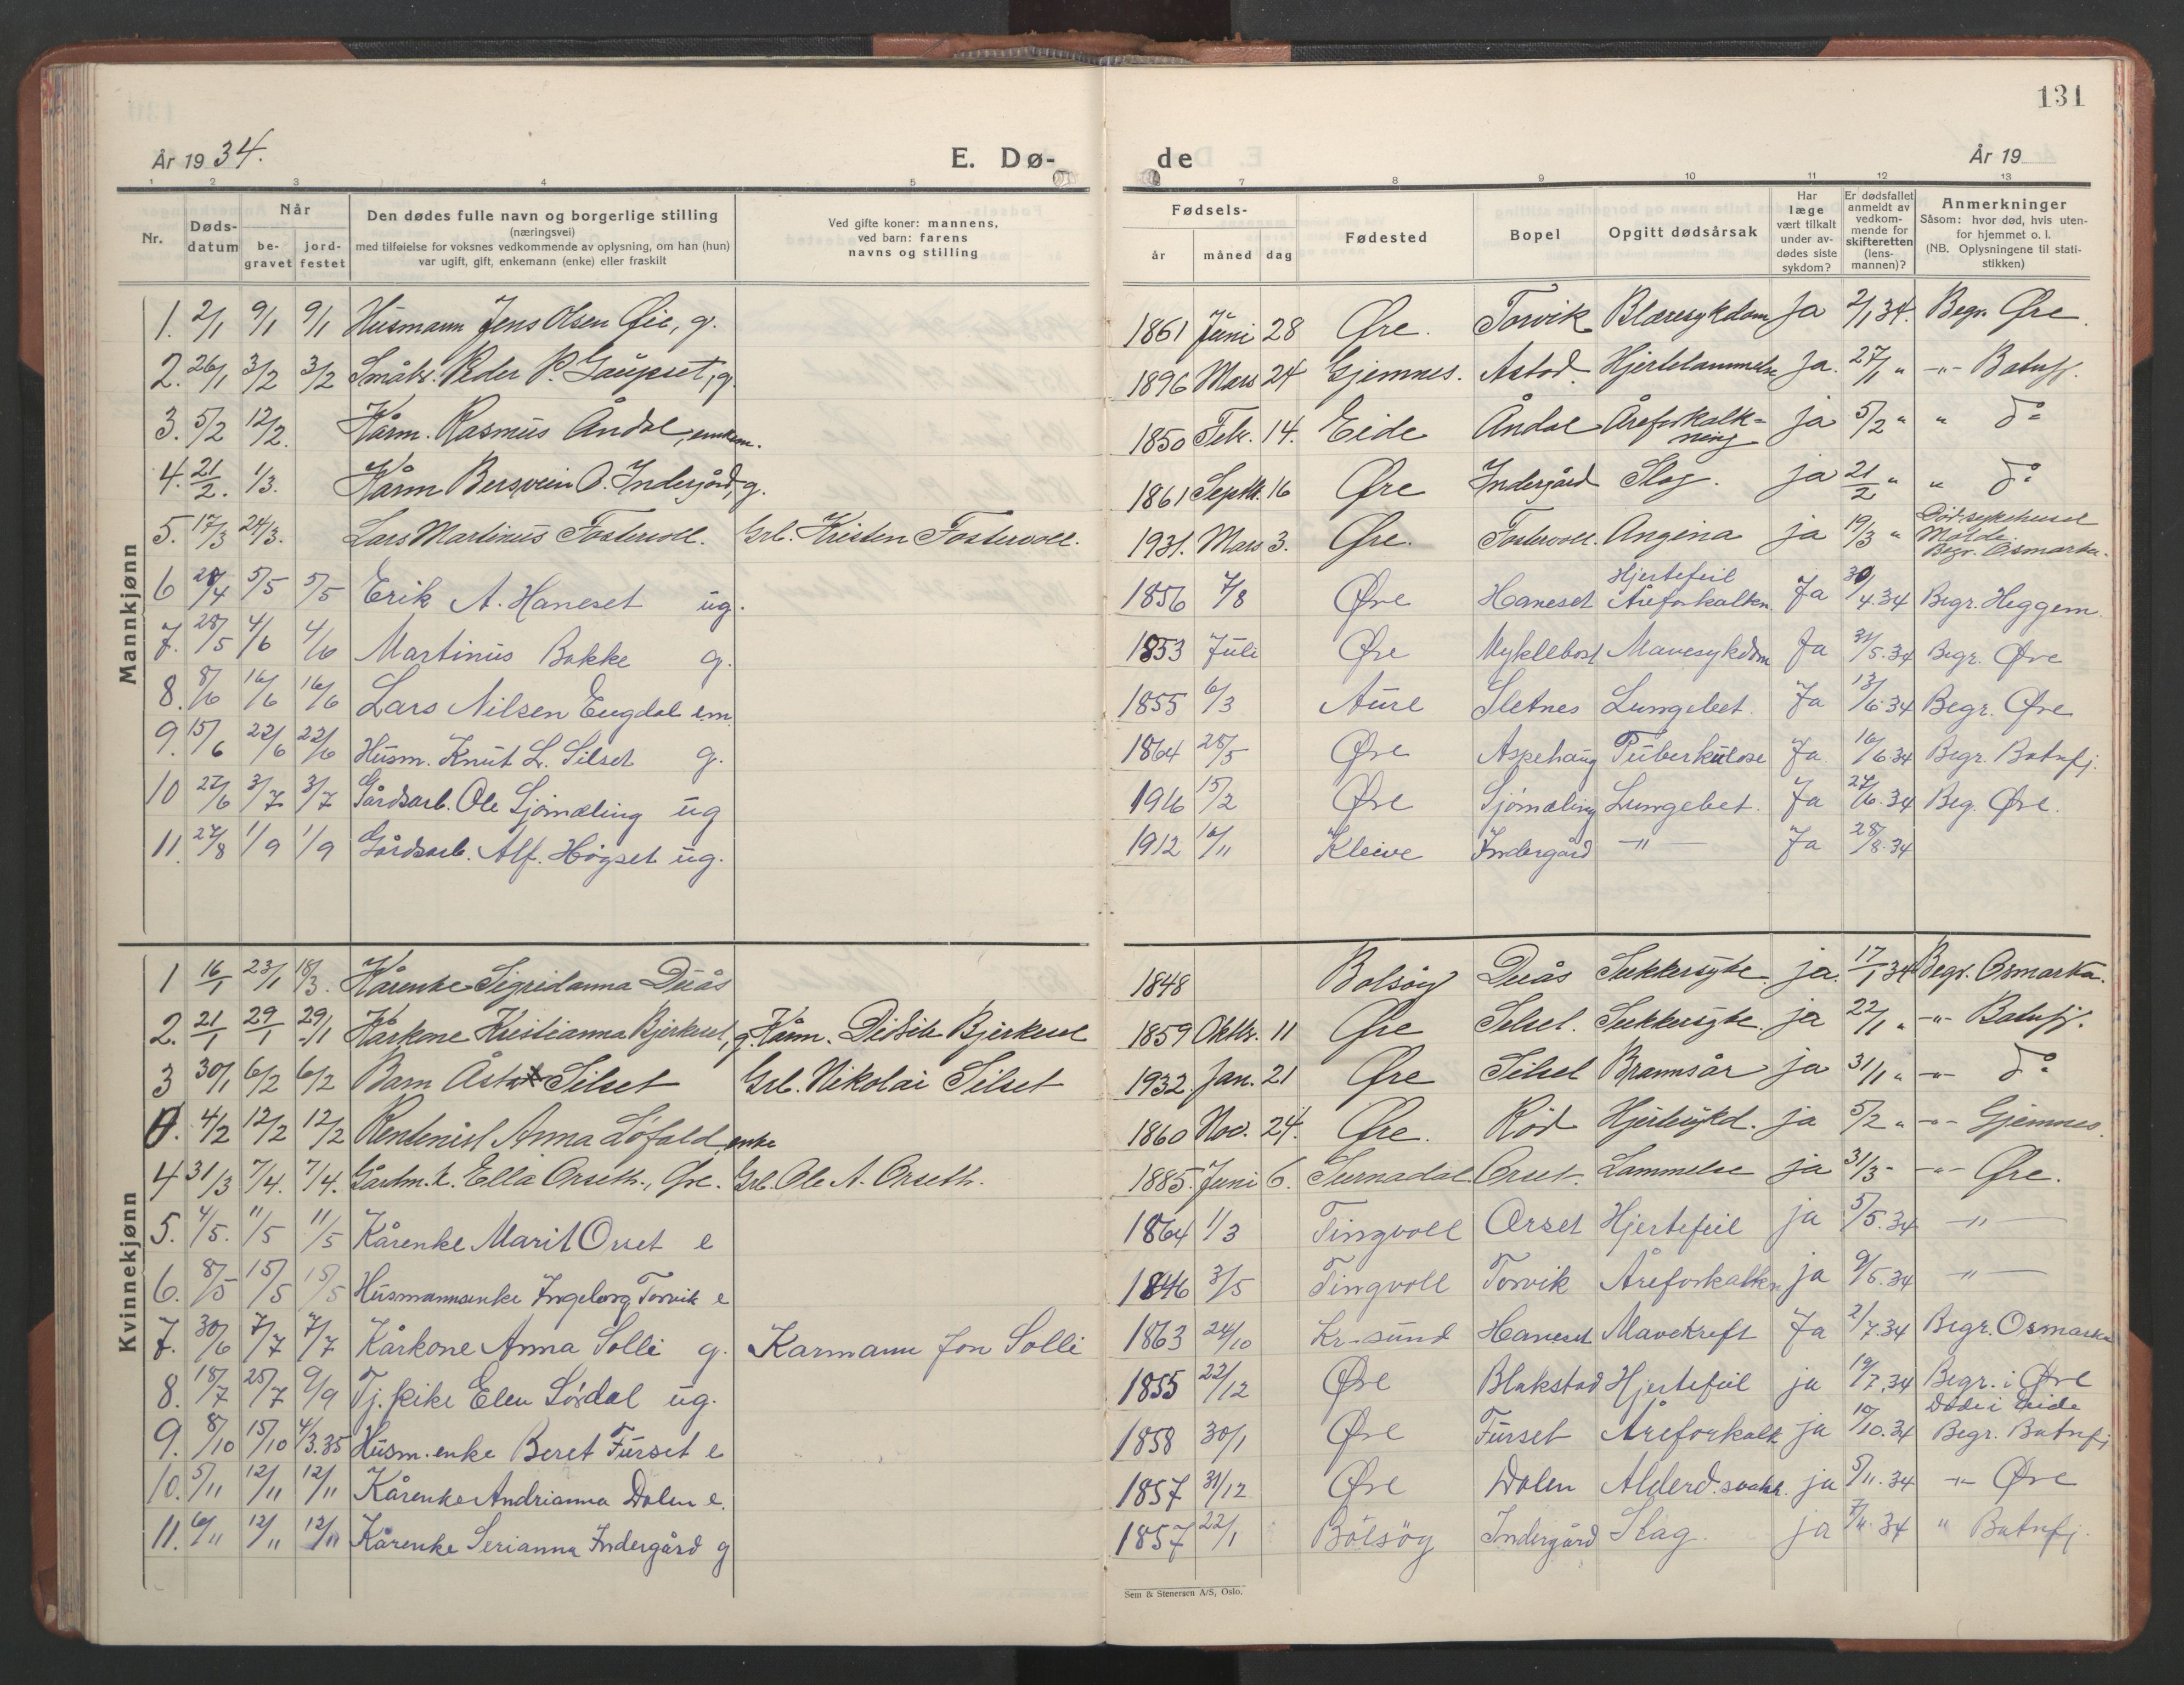 131
År 19 34.
E. Dø-
de
År 19
1 2 3 4 5 6 7 8 9 10 11 12 13
Nr.
Døds-
datum
Når
be-
gravet
jord-
festet
Den dødes fulle navn og borgerlige stilling
(næringsvei)
med tilføielse for voksnes vedkommende av oplysning, om han (hun)
var ugift, gift, enkemann (enke) eller fraskilt
Ved gifte koner: mannens,
ved barn: farens
navns og stilling
Fødsels-
år måned dag
Fødested
Bopel
Opgitt dødsårsak
Har
læge
vært tilkalt
under av-
dødes siste
sykdom?
Er dødsfallet
anmeldt av
vedkom-
mende for
skifteretten
(lens-
mannen)?
Anmerkninger
Såsom: hvor død, hvis uten-
for hjemmet o. l.
(NB. Oplysningene til stati-
stikken)
Mannkjønn
1. 2/1 9/1 9/1 Husmann Jens Olsen Øie, g. 1861 Juni 28 Øre. Torvik Blæresykdom Ja 2/1 34. Begr. Øre.
2. 26/1 3/2 3/2 Småbr. Peder P. Gaupset, g. 1896 Mars 24 Gjemnes. Astad. Hjertelammelse Ja. 27/1 " -"- Batnfj.
3. 5/2 12/2. Kårm. Rasmus Åndal, enkem. 1850 Feb. 14. Eide Åndal Åreforkalk-
ning ja 5/2 " " do
4. 21/2. 1/3. Kårm Bersvein O. Indergård, g. 1861 Septbr. 16 Øre Indergård Slag. ja 21/2 " " do
5. 17/3 24/3. Lars Martinus Fostervoll. Grb. Kristen Fostervoll. 1931. Mars 3. Øre. Fostervoll. Angina ja 19/3 " Død sykehuset
Molde.
Begr. Osmarka.
6 28/4 5/5 5/5 Erik A. Haneset ug. 1856 7/8 Øre Haneset Hjertefeil
Åreforkalkn. Ja 30/4.34 Begr. Heggem.
7. 28/5 4/6 4/6 Martinus Bakke g. 1853 Juli Øre Myklebost Mavesykdom Ja 31/5.34 Begr. Øre
8. 8/6 16/6 16/6 Lars Nilsen Engdal em. 1855 6/3 Aure Sletnes Lungebet. Ja 13/6.34 Begr. Øre
9. 15/6 22/6 22/6 Husm. Knut L. Silset g. 1864 28/5 Øre Aspehaug Tuberkulose Ja 16/6.34 Begr. Batnfj.
10 27/6 3/7 3/7 Gårdsarb. Ole Sjömæling ug 1916 15/2 Øre Sjömæling Lungebet. Ja 27/6.34 Beg. Øre.
11. 27/8 1/9 1/9 Gårdsarb. Alf. Högset ug. 1912 16/11 Kleive Indergård -"- Ja 28/8.34
Kvinnekjønn
1 16/1 23/1 18/3. Kårenke Sigridanna Duås 1848 Bolsöy Duås Sukkersyke ja. 17/1 34 Begr. Osmarka.
2. 21/1 29/1 29/1 Kårkone Kristianna Bjerkeset, g. Kårm. Didrik Bjerkeset 1859 Oktbr. 11 Øre Silset. Sukkersyke. ja 22/1 " -"- Batnfj.
3 30/1 6/2 6/2 Barn Åsta Silset Grb. Nikolai Silset 1932. Jan. 21 Øre Silset Brannsår ja 31/1 " -"- do
4/2 12/2 12/2 Rentenist Anna Löfald, enke 1860 Nov. 24. Øre. Röd Hjertesykd. ja 5/2 " -"- Gjemnes.
4 31/3 7/4. 7/4. Gårdm.k. Ella Orseth, Øre. Grb. Ole A. Orseth. 1885. Juni 6. Surnadal. Orset. Lammelse ja 31/3 - -"- Øre.
5. 4/5. 11/5 11/5 Kårenke Marit Orset e 1864 1/3 Tingvoll Orset Hjertefeil ja 5/5.34 -"-
6. 8/5 15/5 15/5 Husmannsenke Ingeborg Torvik e 1846 3/5 Tingvoll Torvik Åreforkalkn. ja 9/5.34 -"-
7. 30/6 7/7 7/7 Kårkone Anna Solli g. Karmann Jon Solli 1863 24/10 Kr-sund Haneset Mavekreft Ja 2/7.34 Begr. Osmarka
8. 18/7 25/7 9/9 Tj. pike Elen Sördal ug. 1855 22/12 Øre Blakstad Hjertefeil ja 19/7.34 Begr. i Øre
Döde i Eide
9. 8/10 15/10 4/3.35 Husm. enke Beret Furset e 1858 30/1 Øre Furset Åreforkalk ja 10/10.34 Begr. Batnfj
10. 5/11 12/11 12/11 Kårenke Andrianna Dalen e. 1857 31/12 Øre Dalen Alderd. svakk. ja 5/11.34 -"- Øre
11. 6/11 12/11 12/11 Kårenke Serianna Indergård g 1857 22/1 Bölsöy Indergård Slag. ja 7/11.34 " Batnfj.
Sem & Stenersen A/S, Oslo.